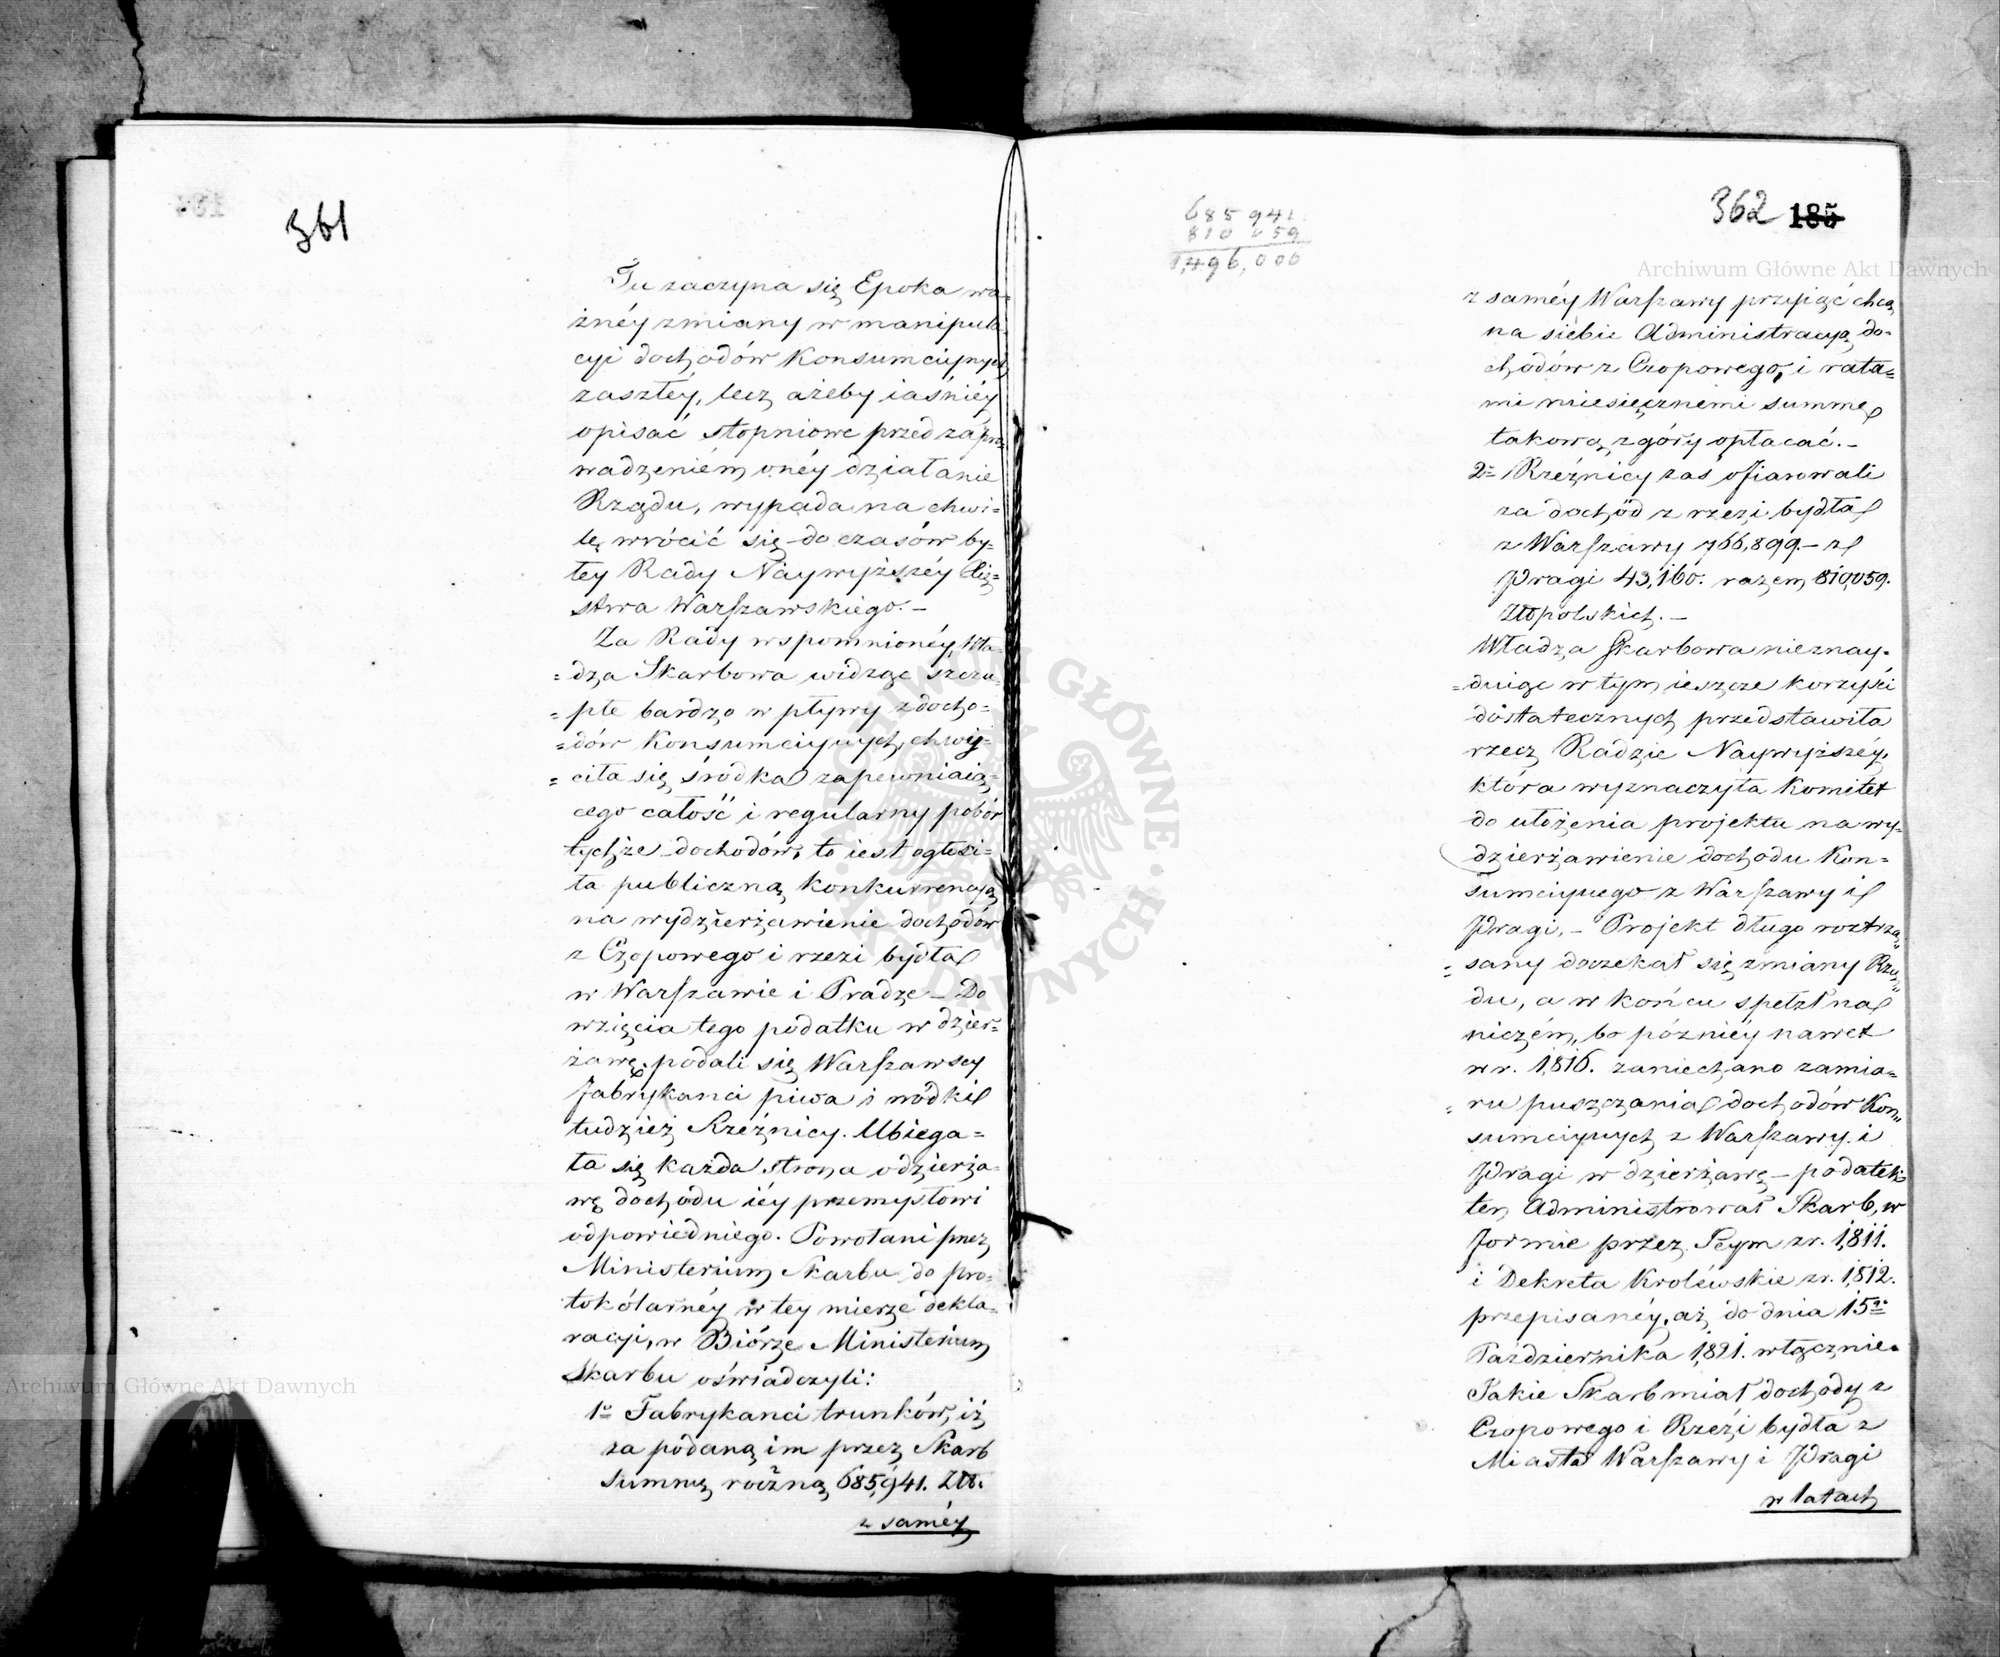 361
Tu zaczyna się Epoka wa-
żnéy zmiany w manipula-
cyi dochodów Konsumcijnych
zaszłéy, lecz ażeby iaśniéy
opisać stopniowe przed zapro-
wadzeniem onéy działanie
Rządu, wypada na chwi=
lę wrócić się do czasów by=
łey Rady Naywyższéy Xię=
stwa Warszawskiego.-
Za Rady wspomnionéy, Wła-
=dza Skarbowa widząc szczu-
=płe bardzo wpływy z docho-
=dów Konsumcijnych, chwy-
=ciła się śródka zapewniaią-
cego całość i regularny pobór
tychże dochodów, to iest ogłosi-
ła publiczną konkurrencyą
na wydzierżawienie dochodów
z Czopowego i rzezi bydła
w Warszawie i Pradze - Do
wzięcia tego podatku w dzier=
żawę, podali się Warszawscy
Fabrykanci piwa i wódki
tudzież Rzéźnicy. Ubiega=
ła się każda strona o dzierża-
wę dochodu iéy przemysłowi
odpowiedniego. Powołani przez
Ministerium Skarbu do pro-
tokólarnéy w tey mierze dekla=
racyi, w Biórze Ministerium
Skarbu oświadczyli:
1° Fabrykanci trunków, iż
za podaną im przez Skarb
Summę roczną 685,941. Złt.
z saméy
685 941.
810 059
1,496,000
362 185
z saméy Warszawy przyiąć chcą
na siebie Administracyą do-
chodów z Czopowego, i rata=
mi miesięcznemi summę
takową z góry opłacać.-
2° Rzeźnicy zaś ofiarowali
za dochód z rzezi bydła
z Warszawy 766,899.- z
Pragi 43,160. razem 810,059.
Złtpolskich.-
Władza Skarbowa nieznay-
=duiąc w tym ieszcze korzyści
dostatecznych przedstawiła
rzecz Radzie Naywyższéy,
która wyznaczyła Komitet
do ułożenia projektu na wy-
dzierżawienie dochodu Kon=
sumcijnego z Warszawy i
Pragi.- Projekt długo roztrzą=
=sany doczekał się zmiany Rzą=
du, a w końcu spełzł na
niczém, bo późniéy nawet
w r. 1,816. zaniechano zamia=
=ru puszczania dochodów Kon=
sumcijnych z Warszawy i
Pragi w dzierżawę - podatek
ten Administrował Skarb, w
formie przez Seym z r. 1,811.
i Dekreta Królewskie z r. 1,812.
przepisanéy, aż do dnia 15go
Października 1,821. włącznie.
Jakie Skarb miał dochody z
Czopowego i Rzezi bydła z
Miasta Warszawy i Pragi
w latach
Archiwum Główne Akt Dawnych
Archiwum Główne Akt Dawnych
ARCHIWUM GŁÓWNE AKT DAWNYCH